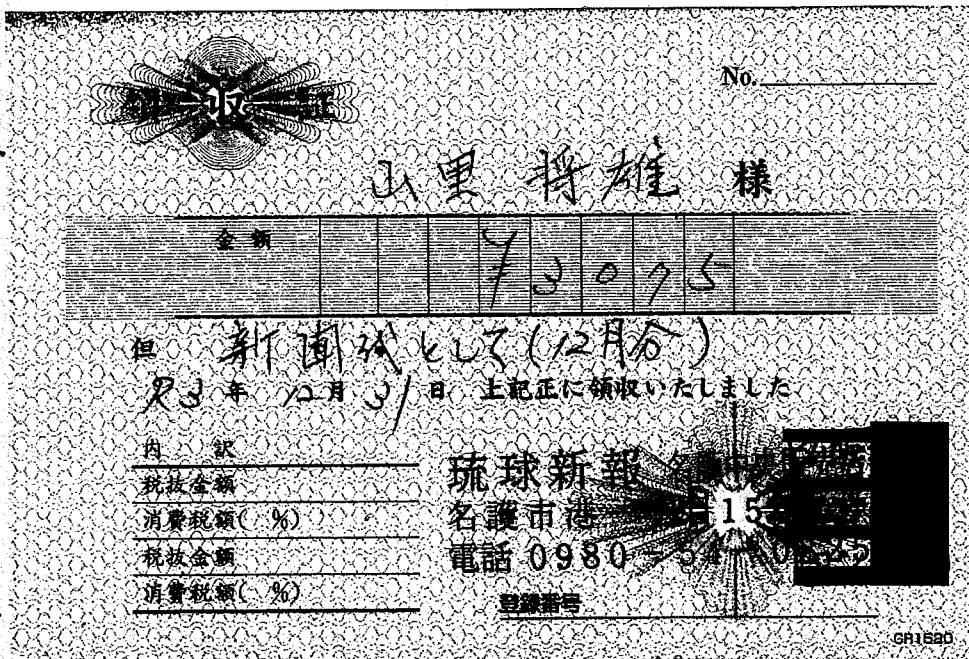 領収証
No.
山里 将雄 様
金額 ¥3075
但 新聞代として(12月分)
R3年 12月31日 上記正に領収いたしました
内 訳
税抜金額
消費税額( %)
税抜金額
消費税額( %)
琉球新報
名護市港
15
電話 0980-54-
登録番号
GR1520